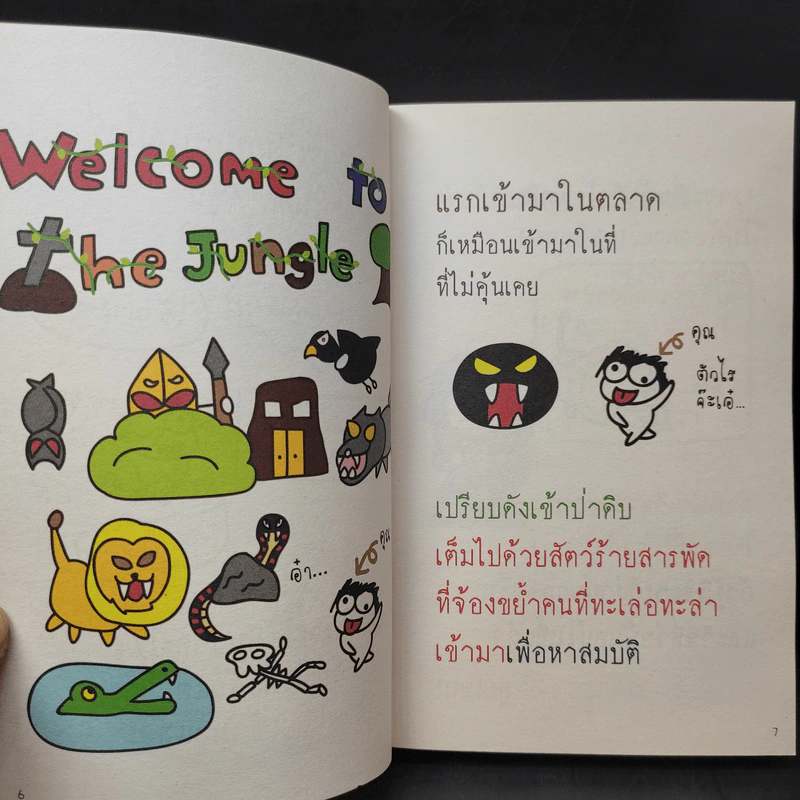 Welcome to
the Jungle
คุณ
อ๋า...
6
แรกเข้ามาในตลาด
ก็เหมือนเข้ามาในที่
ที่ไม่คุ้นเคย
คุณ
ตัวไร
จ๊ะเอ๋...
เปรียบดังเข้าป่าดิบ
เต็มไปด้วยสัตว์ร้ายสารพัด
ที่จ้องขย้ำคนที่ทะเล่อทะล่า
เข้ามาเพื่อหาสมบัติ
7